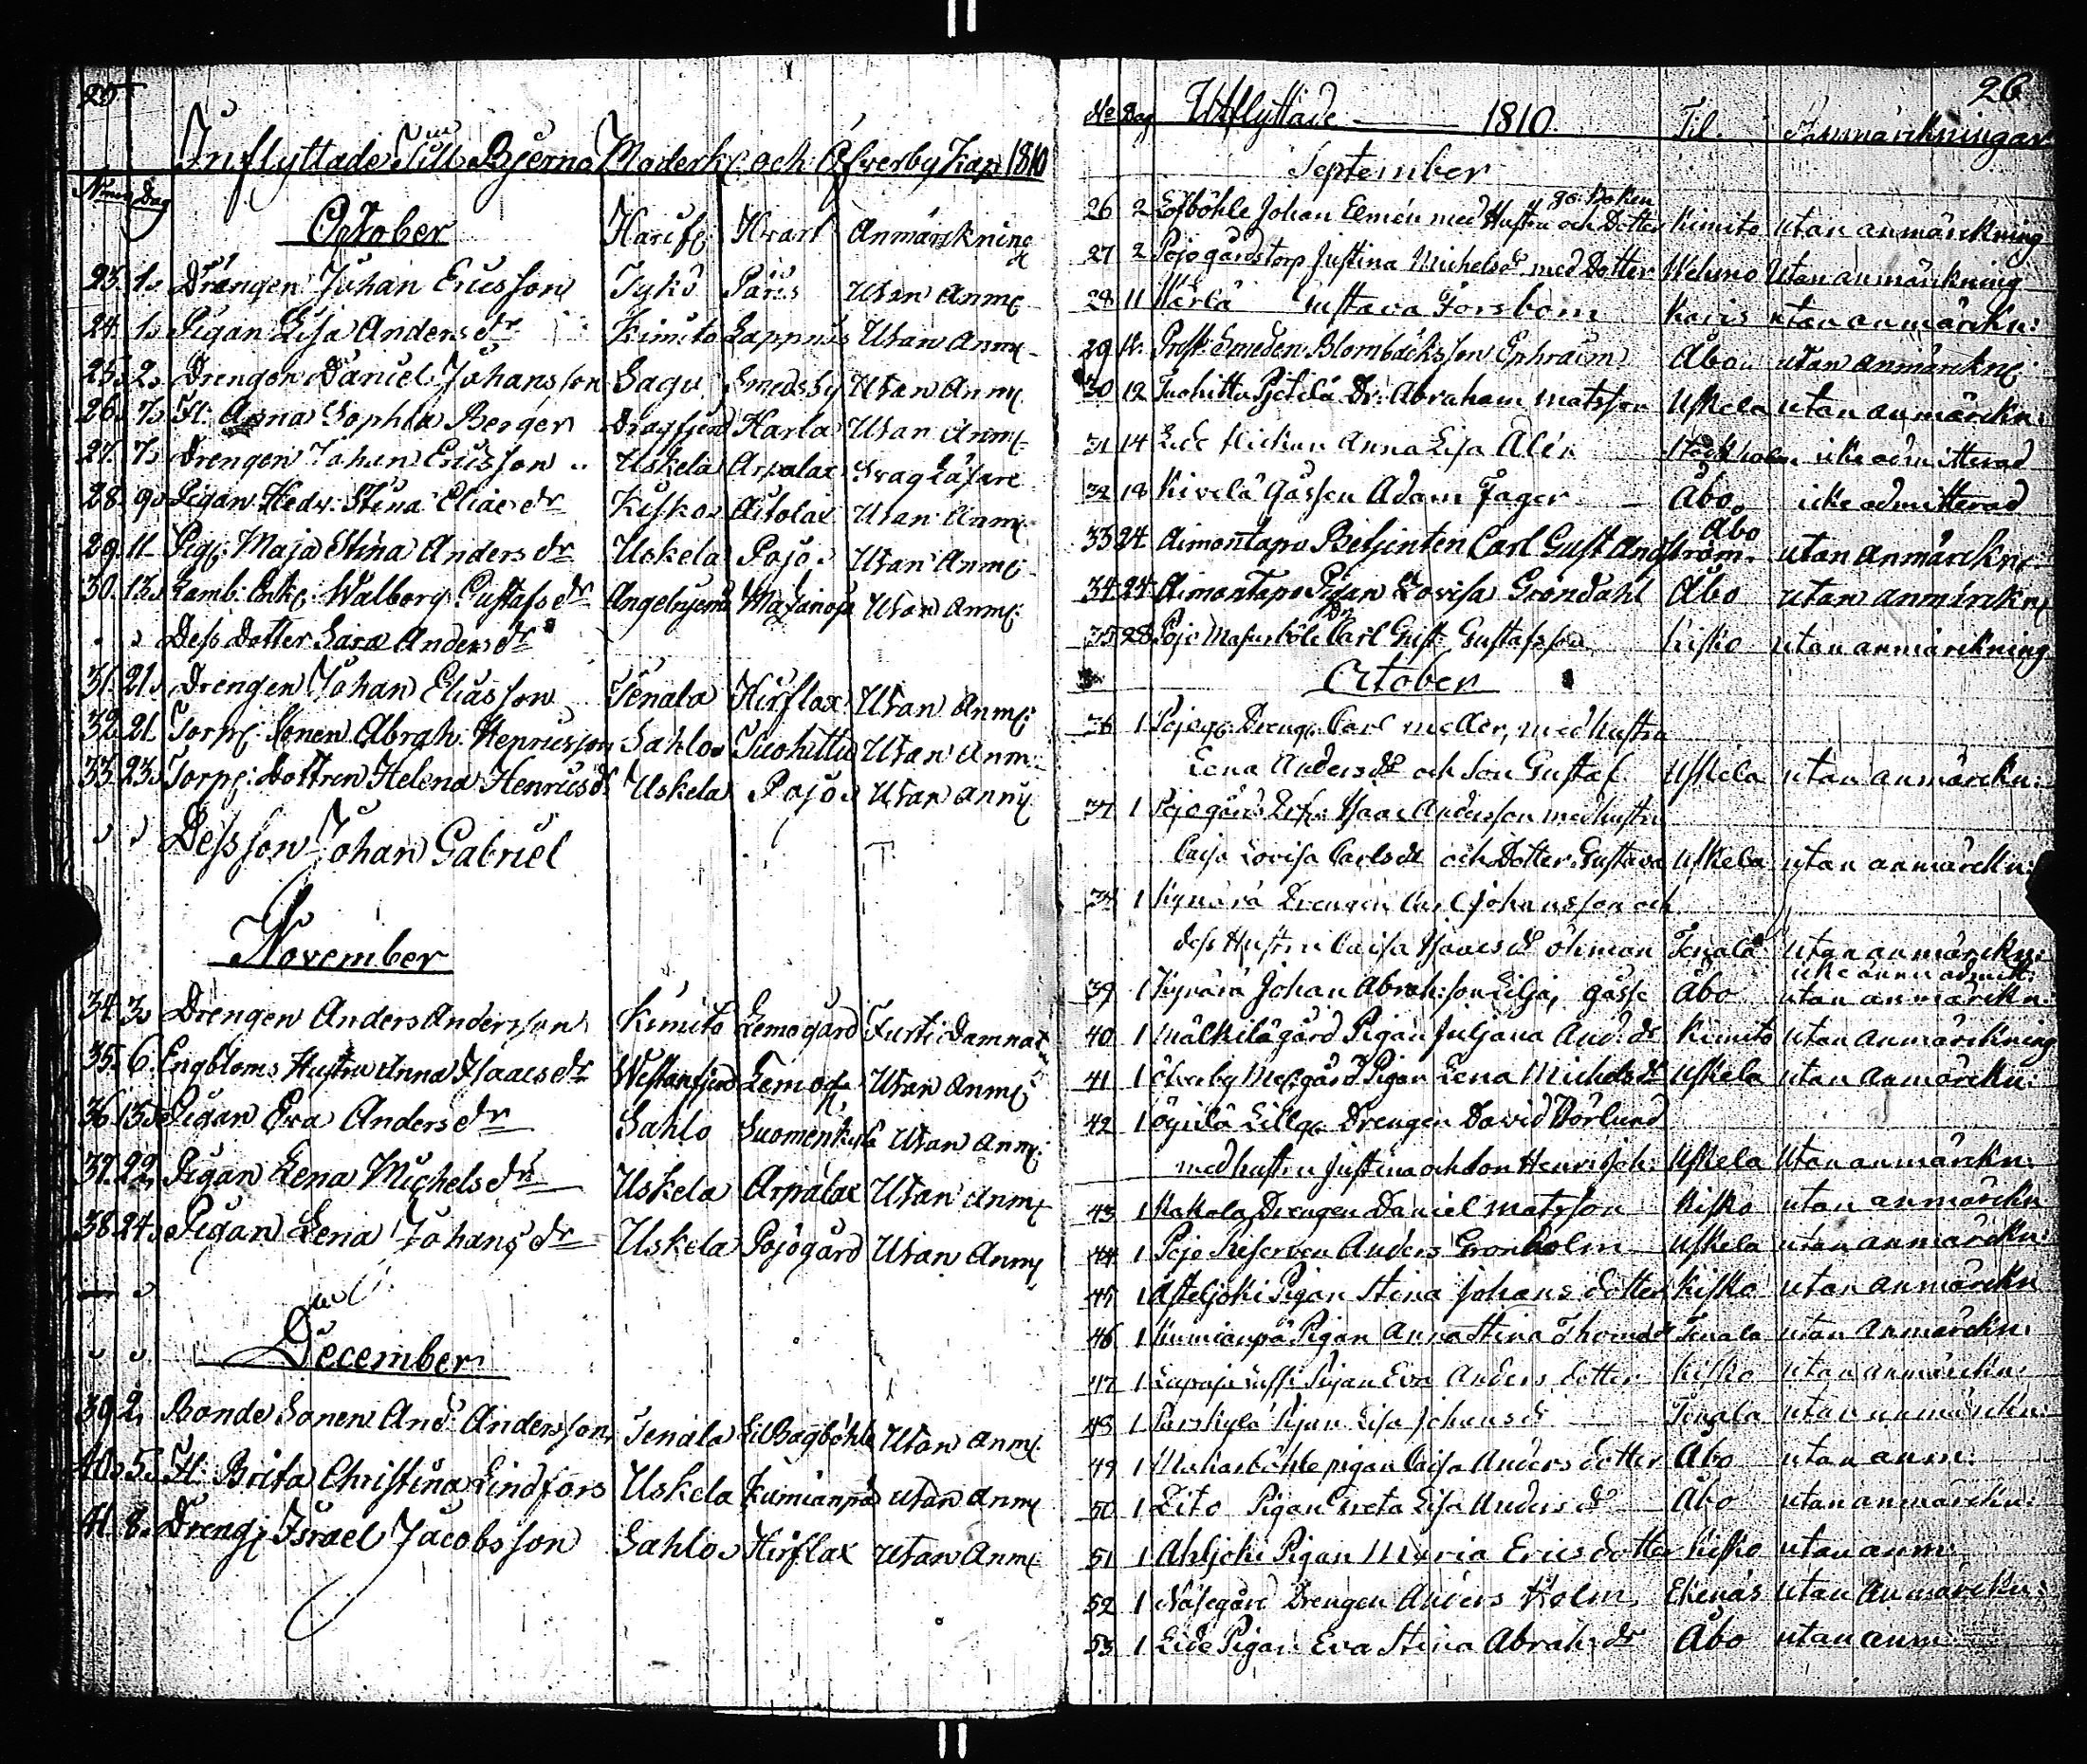 25
Inflyttade Till Bjerno Moderk: och Öfverby Kap 1810
Num Dag
October Harifr: Hvart Anmärkning
23. 1. Drängen Juhan Ericsson Tykö Päris Utan Anm:
24. 1. Pigan Lisa Anders dr Kimito Lappnäs Utan Anm:
25. 2. Drengen Daniel Juhansson Sagu Smedsby Utan Anm:
26. 7. Fl: Anna Sophia Berger Dragfjerd Karla Utan Anm:
27. 7. Drengen Johan Ericsson Uskela Arpalax Svag Läsare
28. 9. Pigan Hedv: Stina Elias dr Kisko Aitolax Utan Anm:
29. 11 Pig: Maja Stina Anders dr Uskela Pojo Utan Anm:
30. 13. Enk: Walborg Gustafs dr Angelnjemi Utan Anm:
Dess Dotter Sara Anders dr
31. 21. Drengen Johan Eliasson Tenala Hirslax Utan Anm:
32. 21. Torp: Sonen Abrah: Henricsson Sahlo Tuohittu Utan Anm:
33. 23. Torp: Dottren Helena Henrics dr Uskela Pojo Utan Anm:
Dess son Johan Gabriel
November
34. 3. Drengen Anders Andersson Kimito Lemogård Furti Damnat
35. 6. Engbloms Hustru Anna Isaacs dr Westanfjerd Lemog: Utan Anm:
36 13. Pigan Eva Anders dr Sahlo Suomenkylä Utan Anm:
37. 22. Pigan Lena Michels dr Uskela Arpalax Utan Anm:
38 24. Pigan Lena Johans dr Uskela Pojogård Utan Anm:
December
39 2. Bonde Sonen And: Andersson Tenala Lil Bagböhle Utan Anm:
40. 5. Fl: Brita Christina Lindfors Uskela Kumianpä utan Anm:
41. 8. Dreng: Israel Jacobsson Sahlo Hirslax utan Anm:
26
No Dag Utflyttade 1810. Til. Anmärckningar
September
26 2 Löfböhle Johan Elmén med Hustru och Dotter Kimito utan anmärckning
27 2 Pojogårdstorp Justina Michelsdr med Dotter Wehmo Utan anmärckning
28 11 Kärlä Gustava Forsbom Karis utan anmärckn:
29 12. Prest: Smeden Blombäcks son Ephraim Åbo utan anmärckn:
30 12 Tuohittu Pjetilä Dr: Abraham Matsson Uskela utan anmärckn:
31 14 Lide flickan Anna Lisa Alén Stockholm icke admitterad
32 18 Kivelä Gåssen Adam Jager Åbo icke admitterad
33 24 Aimontapo Betjenten Carl Gust Angström Åbo utan anmärckn:
34 24 Aimontapo Pigan Lovisa Gröndahl Åbo utan anmärckn:
35 28 Pojo Masurböle Carl Gust: Gustafsson Kisko utan anmärckning
October
36 1 Pojog: Dreng: Carl Meller, med hustru
Lena Anders dr och Son Gustaf Uskela utan anmärckn:
37 1 Pojogård Isaac Andersson med hustru
Caisa Lovisa Carls dr och Dotter Gustava Uskela utan anmärckn:
38 1 Kynärä Drengen Carl Johansson och
dess Hustru Caisa Isaacs dr Öhman Tenala utan anmärckn:
39 1 Kynärä Johan Abrah:son Lilja, gåsse Åbo utan anmärckn:
40 1 Mälkilägård Pigan Juljana And: dr Kimito utan anmärckning
41 1 Öfverby Mel:gård Pigan Lena Michels dr Uskela utan anmärckn:
42 1 Lillg: Drengen David Dörlund
med hustru Justina och son Henr: Joh: Uskela Utan anmärckn:
43 1 Kakola Drengen Daniel Matsson Kisko utan anmärckn:
44 1 Pojo Anders Gronholm Uskela utan anmärckn:
45 1 Asteljoki Pigan Stina Johans dotter Kisko utan anmärckn
46 1 Kumianpä Pigan Anna Stina Thomae dr Tenala utan anmärckn:
47 1 Pigan Eva Anders dotter Kisko utan anmärckn:
48 1 Parskylä Pigan Lisa Johans dr Tenala utan anmärckn:
49 1 pigan Caisa Anders dotter Åbo utan anm:
50 1 Lito Pigan Greta Lisa Anders dr Åbo utan anmärckn:
51 1 Ahljoki Pigan Maria Erics dotter Kisko utan anm:
52 1 Näsegård Drengen Anders Holm Ekenäs utan anmärckn:
53 1 Lide Pigan Eva Stina Abrah: dr Åbo utan anm: